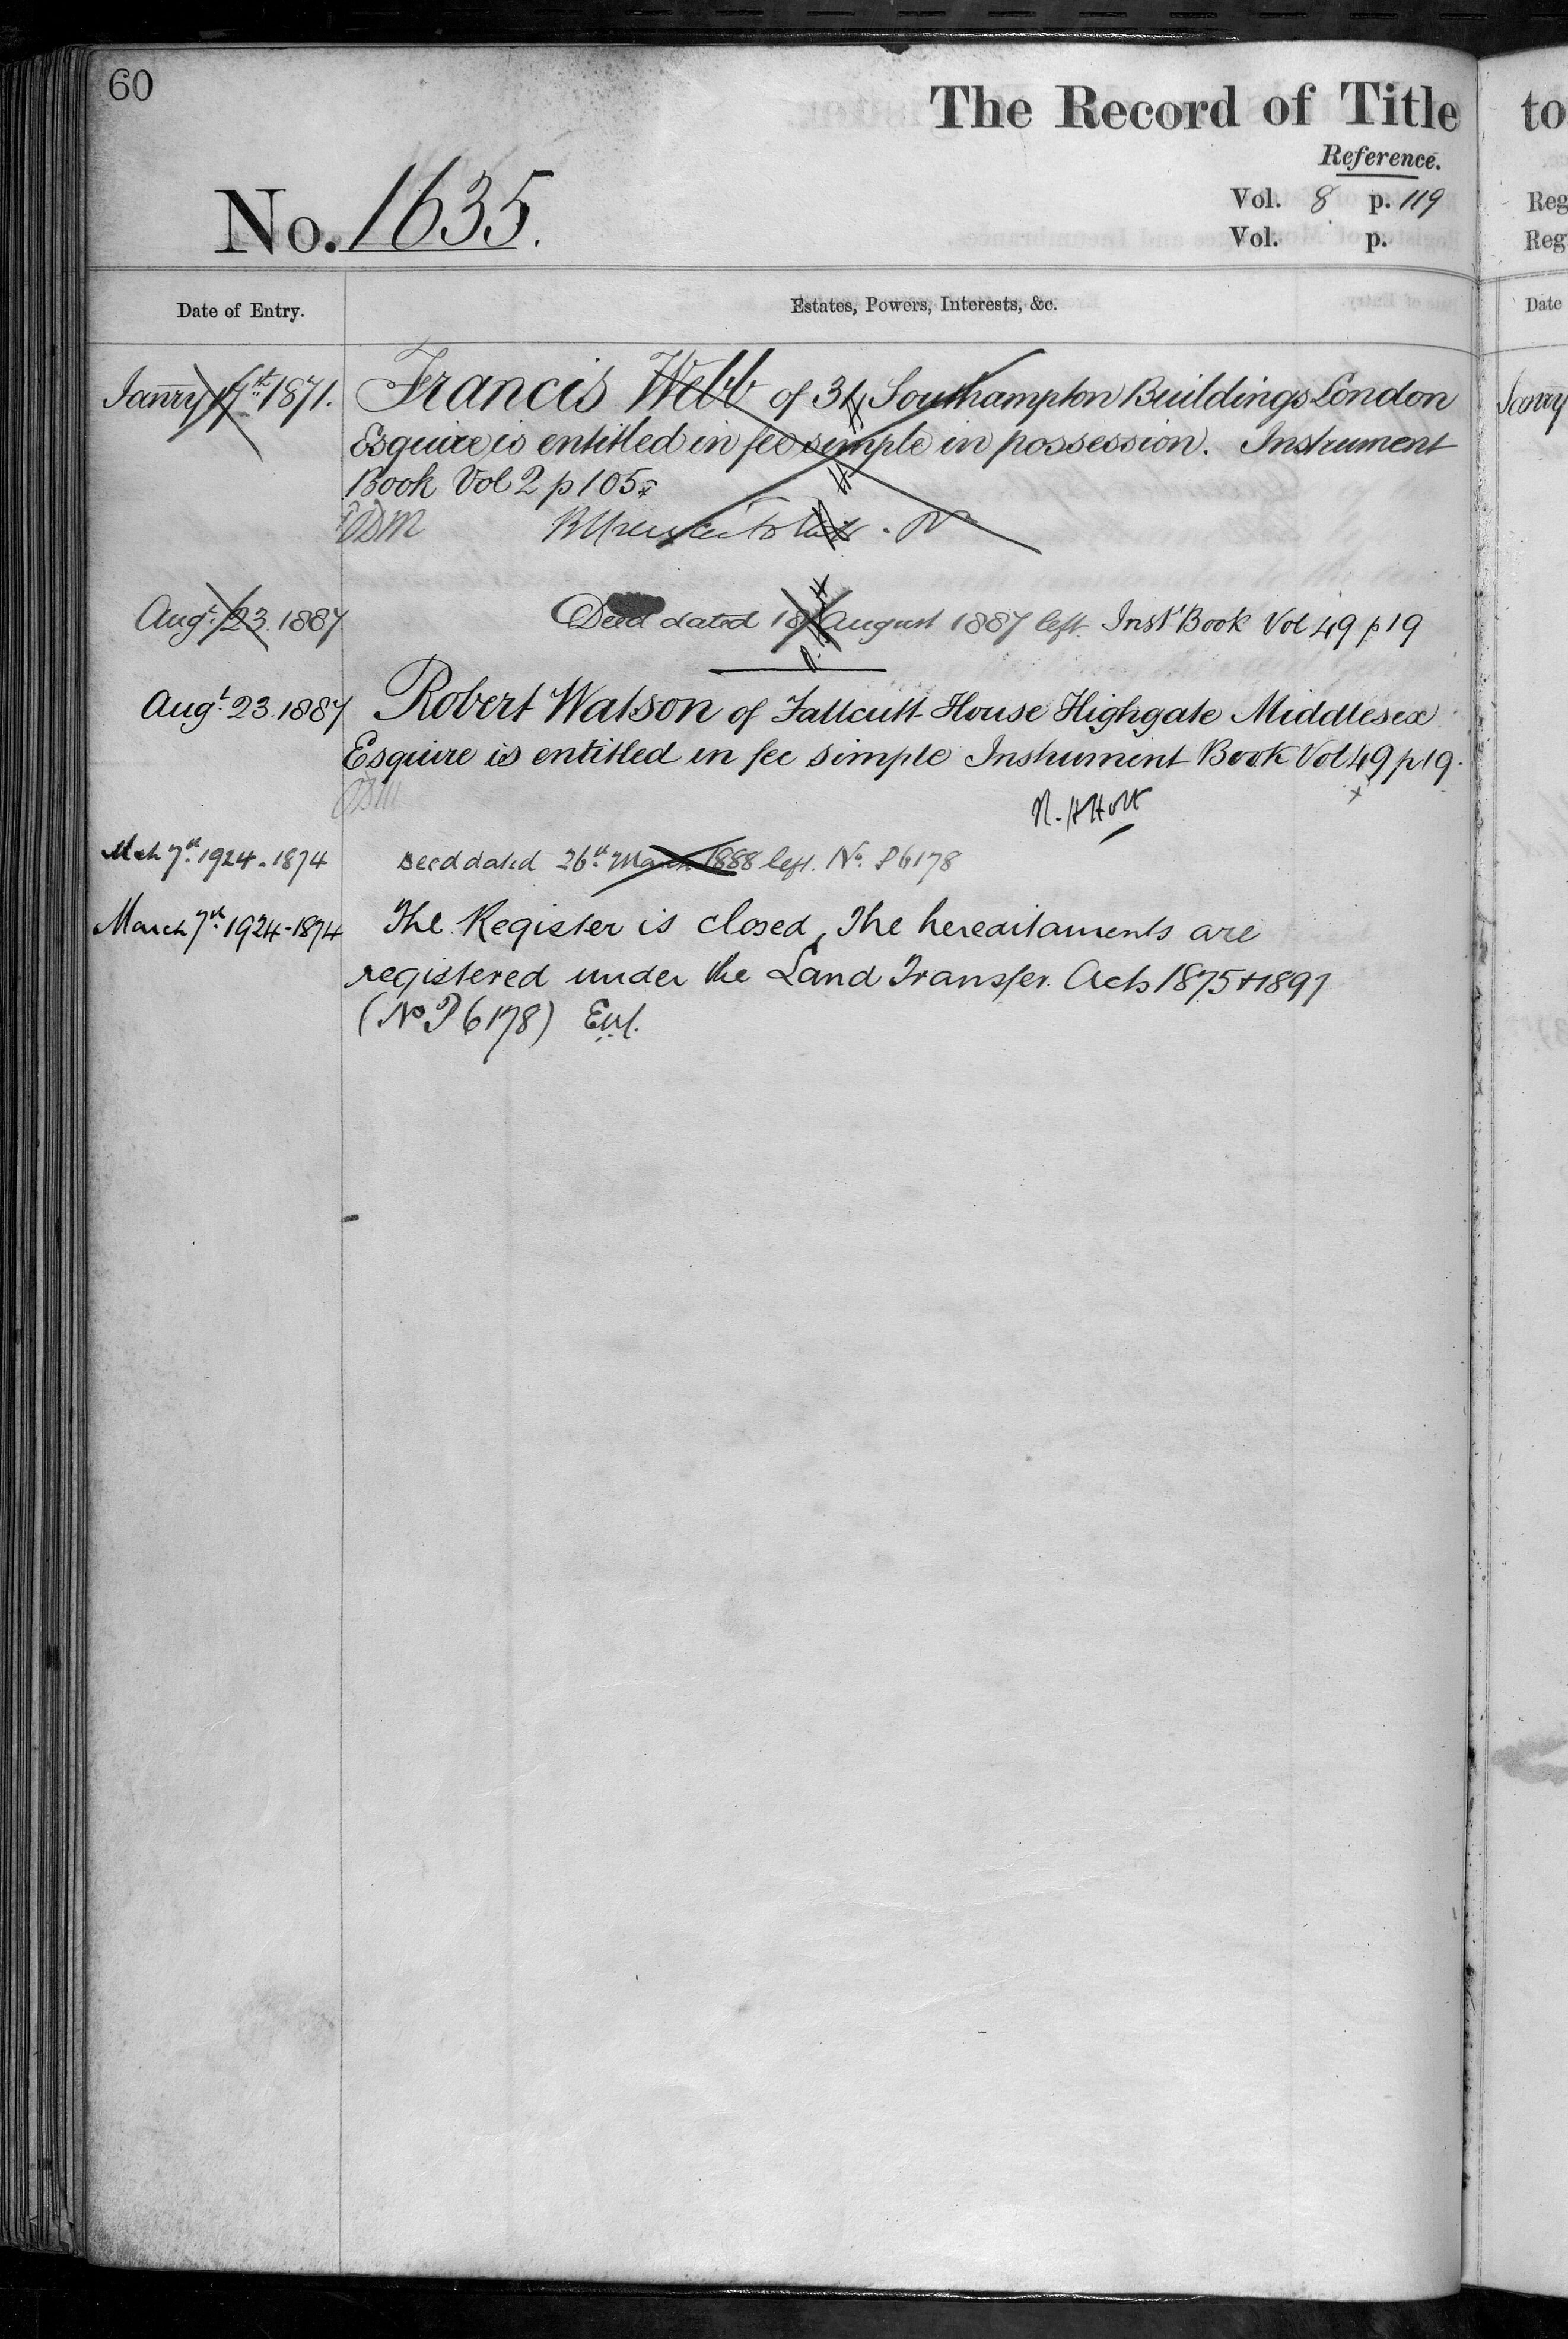 60
The Record of Title
to
Reference.
No. 1635.
Vol. 8 p. 119
Reg
Vol. p.
Reg
Date of Entry.
Estates, Powers, Interests, &c.
Date
Janry 1871. Francis Webb of 31 Southampton Buildings London
Janry
Esquire is entitled in fee simple in possession. Instrument
Book Vol 2 p 105
Augt. 23. 1887 Deed dated 18 August 1887 left. Inst Book Vol 49 p 19
Augt. 23. 1887 Robert Watson of Fallcutt House Highgate Middlesex
Esquire is entitled in fee simple Instrument Book Vol 49 p 19.
Mch 7th. 1924. 1874 Deed dated 26th. March 1888 left. No. P6178
March 7th. 1924-1874 The Register is closed, The hereditaments are
registered under the Land Transfer Acts 1875 + 1897
(No P 6178)